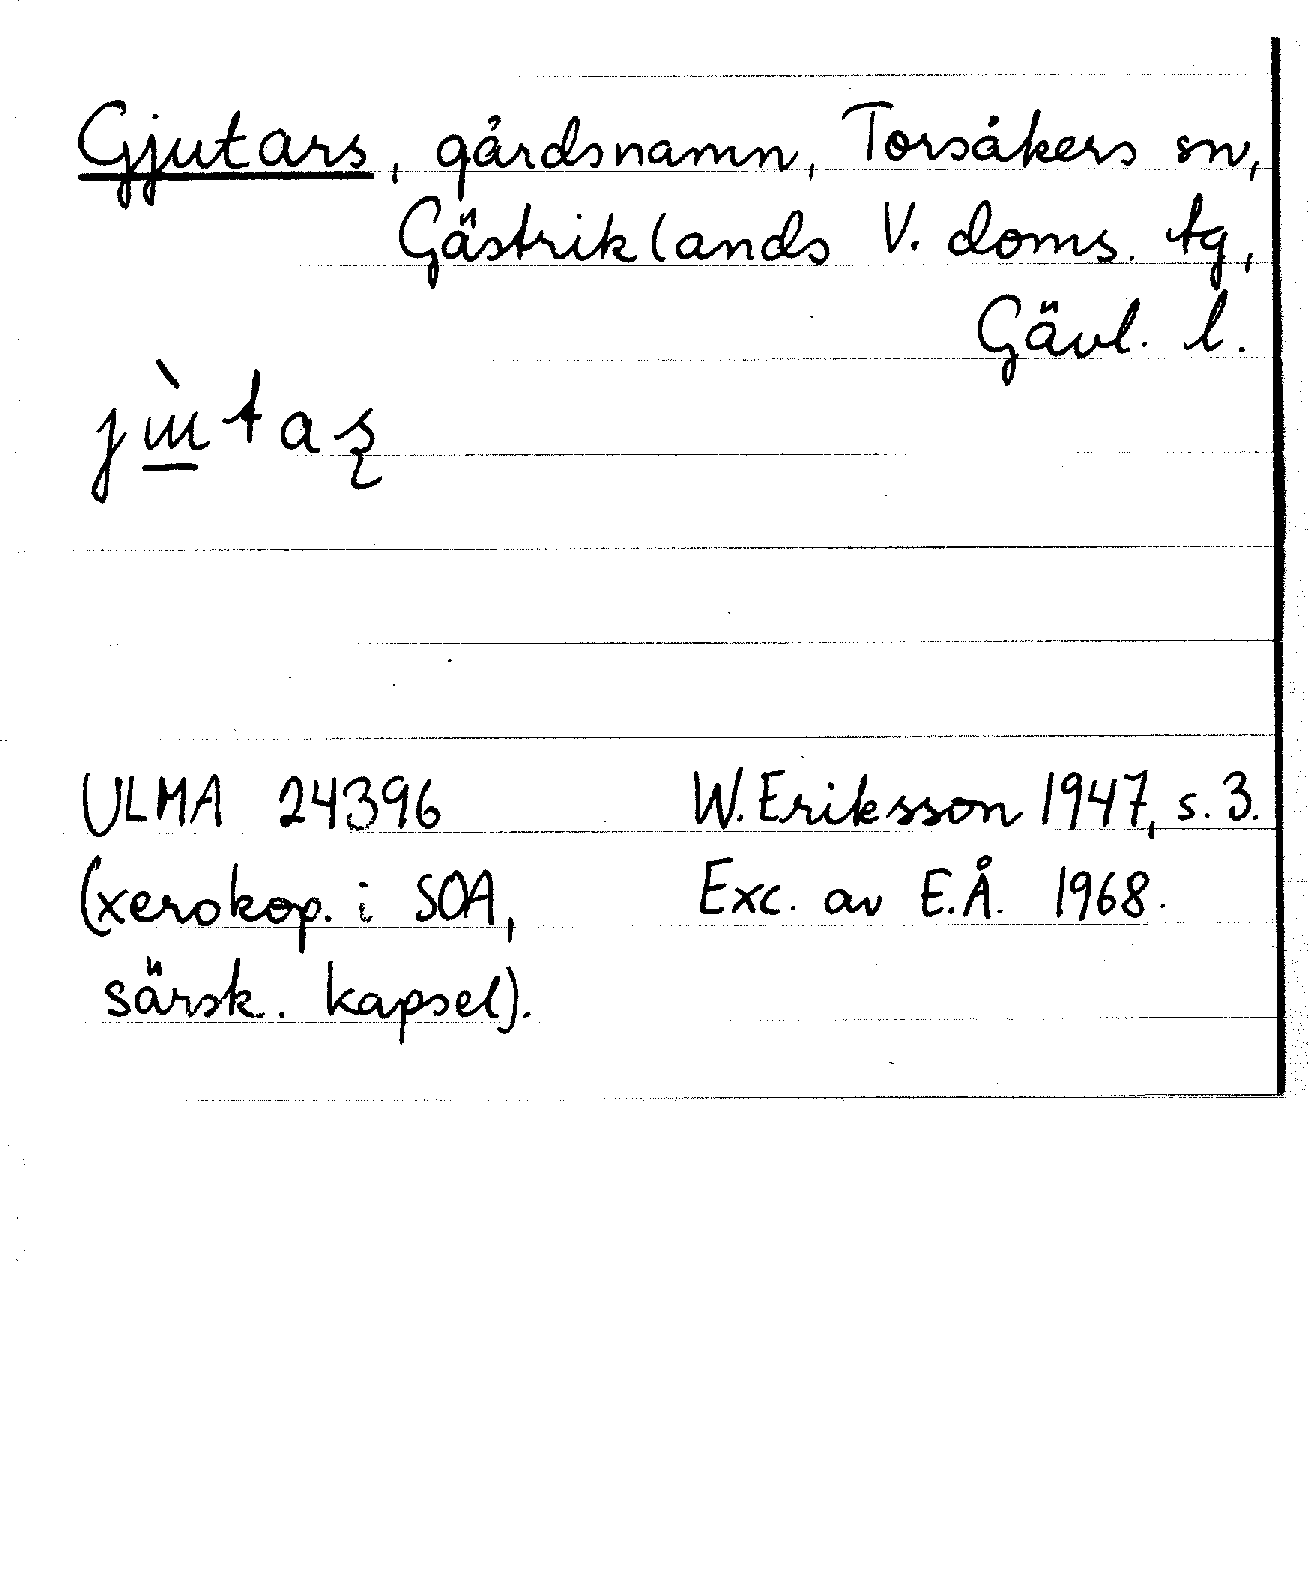 Gjutars, gårdsnamn, Torsåkers sn,
Gästriklands V. doms. tg,
Gävl. l.
ULMA 24396 W. Eriksson 1947, s. 3.
(xerokop. i SOA, Exc. av E.Å. 1968.
särsk. kapsel).